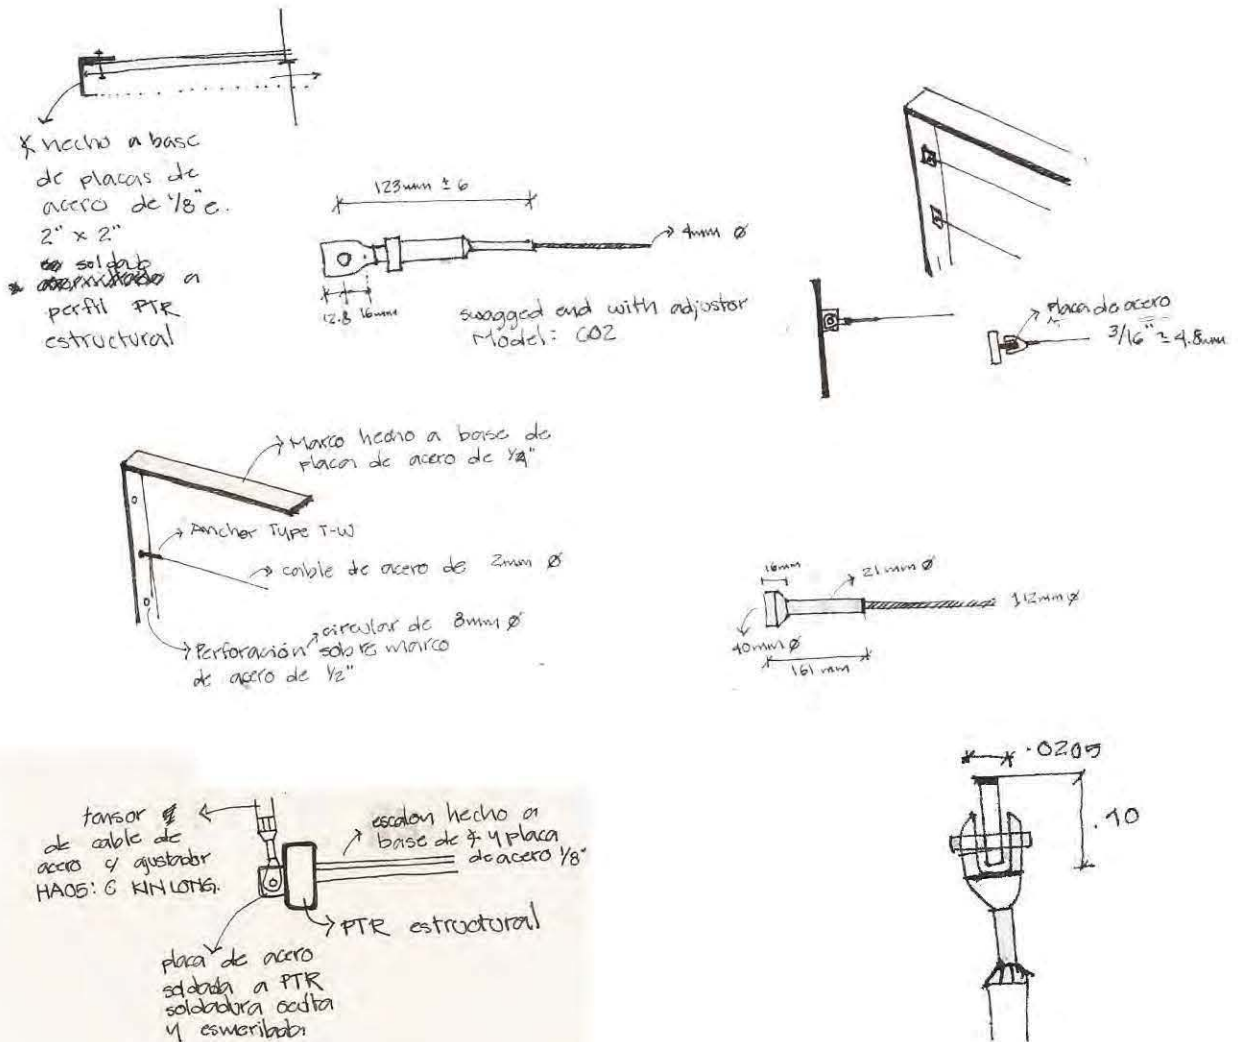 hecho a base
de placas de
acero de 1/8" e.
2" x 2"
soldab
a
perfil PTR
estructural
123mm ± 6
4mm Ø
12.8 16mm
swagged end with adjustor
Model: C02
Placa de acero
3/16" ≈ 4.8mm
Marco hecho a base de
placa de acero de 1/4"
Anchor Type T-W
cable de acero de 2mm Ø
Perforación circular de 8mm Ø
sobre marco
de acero de 1/2"
16mm
21mm Ø
12mm Ø
40mm Ø
161 mm
tensor
de cable de
acero c/ ajustador
HA05: C KINLONG.
escalon hecho a
base de y placa
de acero 1/8"
PTR estructural
placa de acero
soldada a PTR
soldadura oculta
y esmerilada
.0205
.10